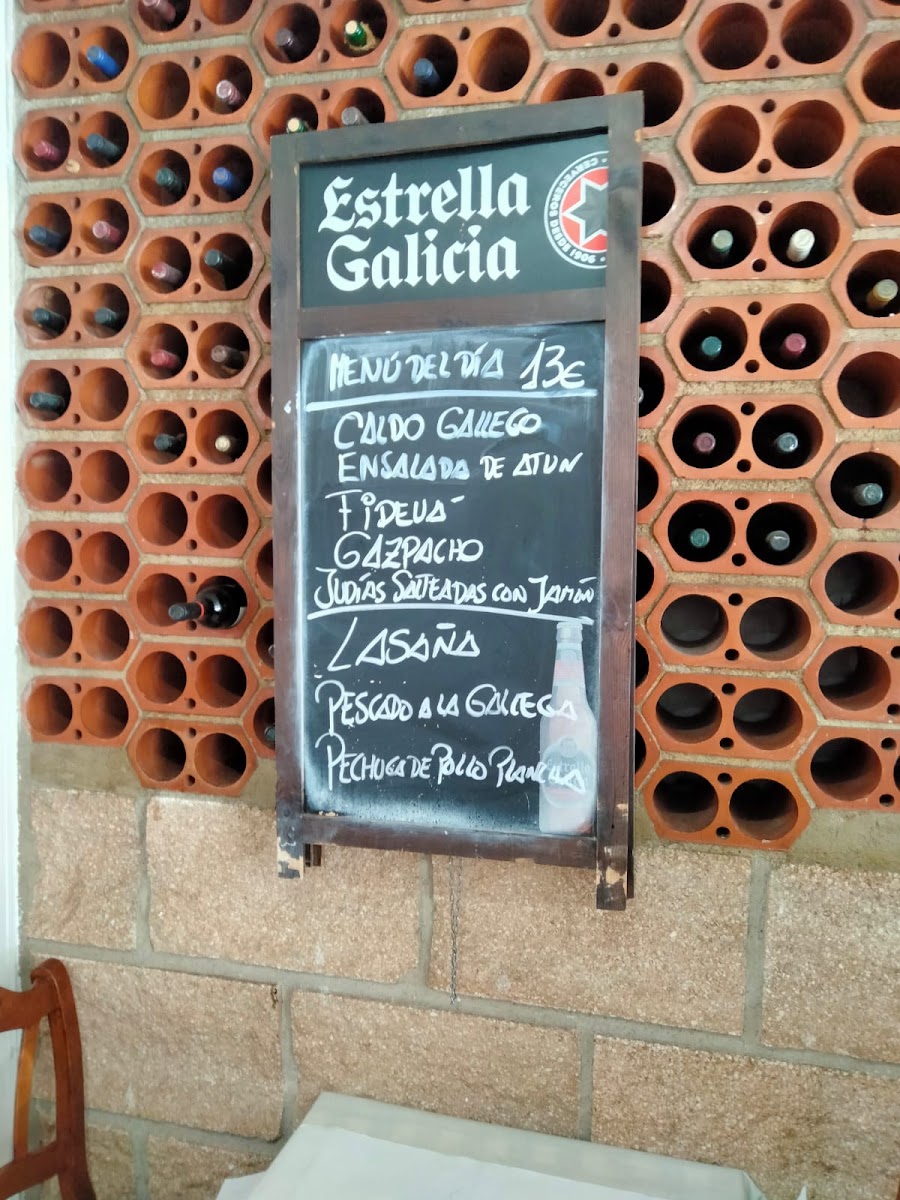 Estrella
Galicia
CERVECEROS DESDE 1906
MENÚ DEL DÍA 13€
CALDO GALLEGO
ENSALADA DE ATUN
FIDEUÁ
GAZPACHO
JUDÍAS SALTEADAS CON JAMÓN
LASAÑA
PESCADO A LA GALLEGA
PECHUGA DE POLLO PLANCHA
Estrella